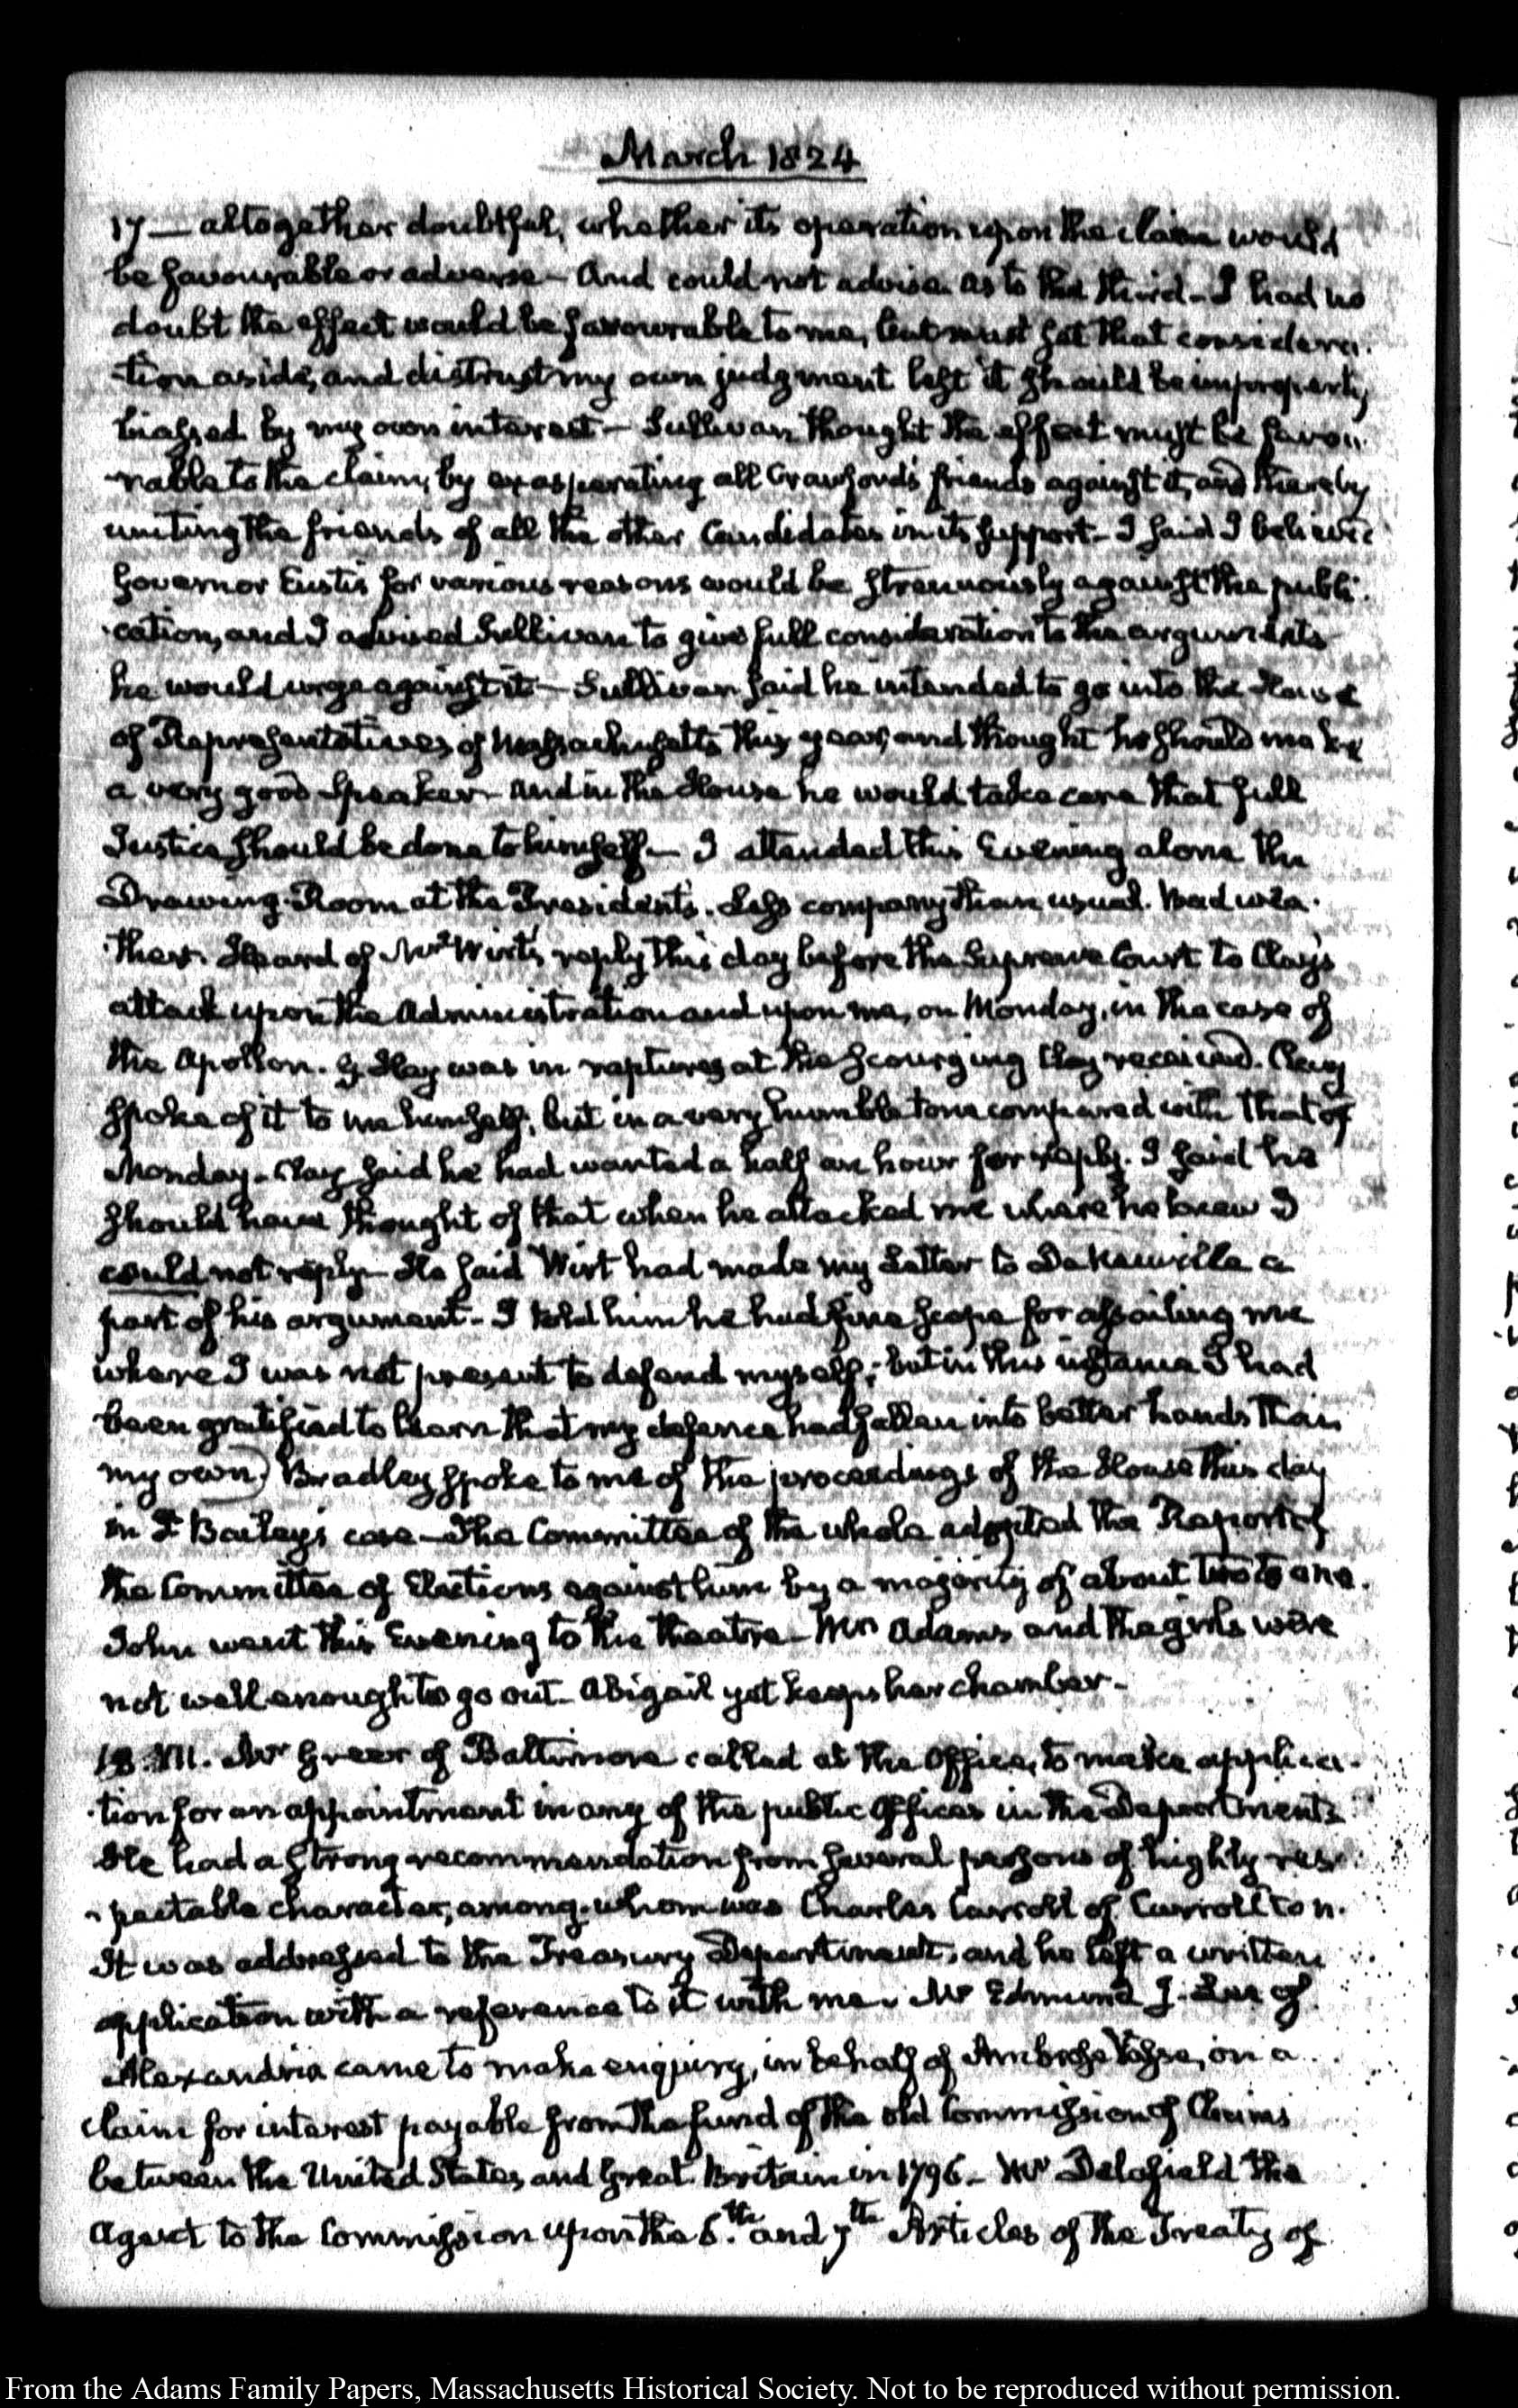 March 1824
17 — altogether doubtful, whether its operation upon the claim would
be favourable or adverse — And could not advise. As to the third — I had no
doubt the effect would be favourable to me, but must set that considera-
-tion aside, and distrust my own judgment lest it should be improperly
biassed by my own interest — Sullivan thought the effect must be favou-
-rable to the claim, by exasperating all Crawford's friends against it, and thereby
uniting the friends of all the other Candidates in its support — I said I believed
Governor Eustis for various reasons would be strenuously against the publi-
-cation, and I advised Sullivan to give full consideration to the arguments
he would urge against it — Sullivan said he intended to go into the House
of Representatives of Massachusetts this year, and thought he should make
a very good Speaker — And in the House he would take care that full
Justice should be done to himself — I attended this Evening alone the
Drawing-Room at the President's. Less company than usual. Bad wea-
-ther. Heard of Mr Wirt's reply this day before the Supreme Court to Clay's
attack upon the Administration and upon me, on Monday, in the case of
the Apollon. G. Hay was in raptures at the scourging Clay received. Clay
spoke of it to me himself; but in a very humble tone compared with that of
Monday — Clay said he had wanted a half an hour for reply. I said he
should have thought of that when he attacked me where he knew I
could not reply — He said Wirt had made my Letter to De Neuville a
part of his argument — I told him he had fine scope for assailing me
where I was not present to defend myself; but in this instance I had
been gratified to learn that my defence had fallen into better hands than
my own. Bradley spoke to me of the proceedings of the House this day
in J. Bailey's case — The Committee of the whole adopted the Report of
the Committee of Elections against him by a majority of about two to one.
John went this Evening to the theatre — Mrs Adams and the girls were
not well enough to go out — Abigail yet keeps her chamber —
18. VII. Mr Greer of Baltimore called at the Office, to make applica-
-tion for an appointment in any of the public Offices in the Departments
He had a strong recommendation from several persons of highly res-
-pectable character, among whom was Charles Carroll of Carrollton.
It was addressed to the Treasury Department, and he left a written
application with a reference to it with me. Mr Edmund J. Lee of
Alexandria came to make enquiry, in behalf of Ambrose Vasse, on a
claim for interest payable from the fund of the old Commission of Claims
between the United States and Great Britain in 1796 — Mr Delafield the
Agent to the Commission upon the 6th and 7th Articles of the Treaty of
From the Adams Family Papers, Massachusetts Historical Society. Not to be reproduced without permission.